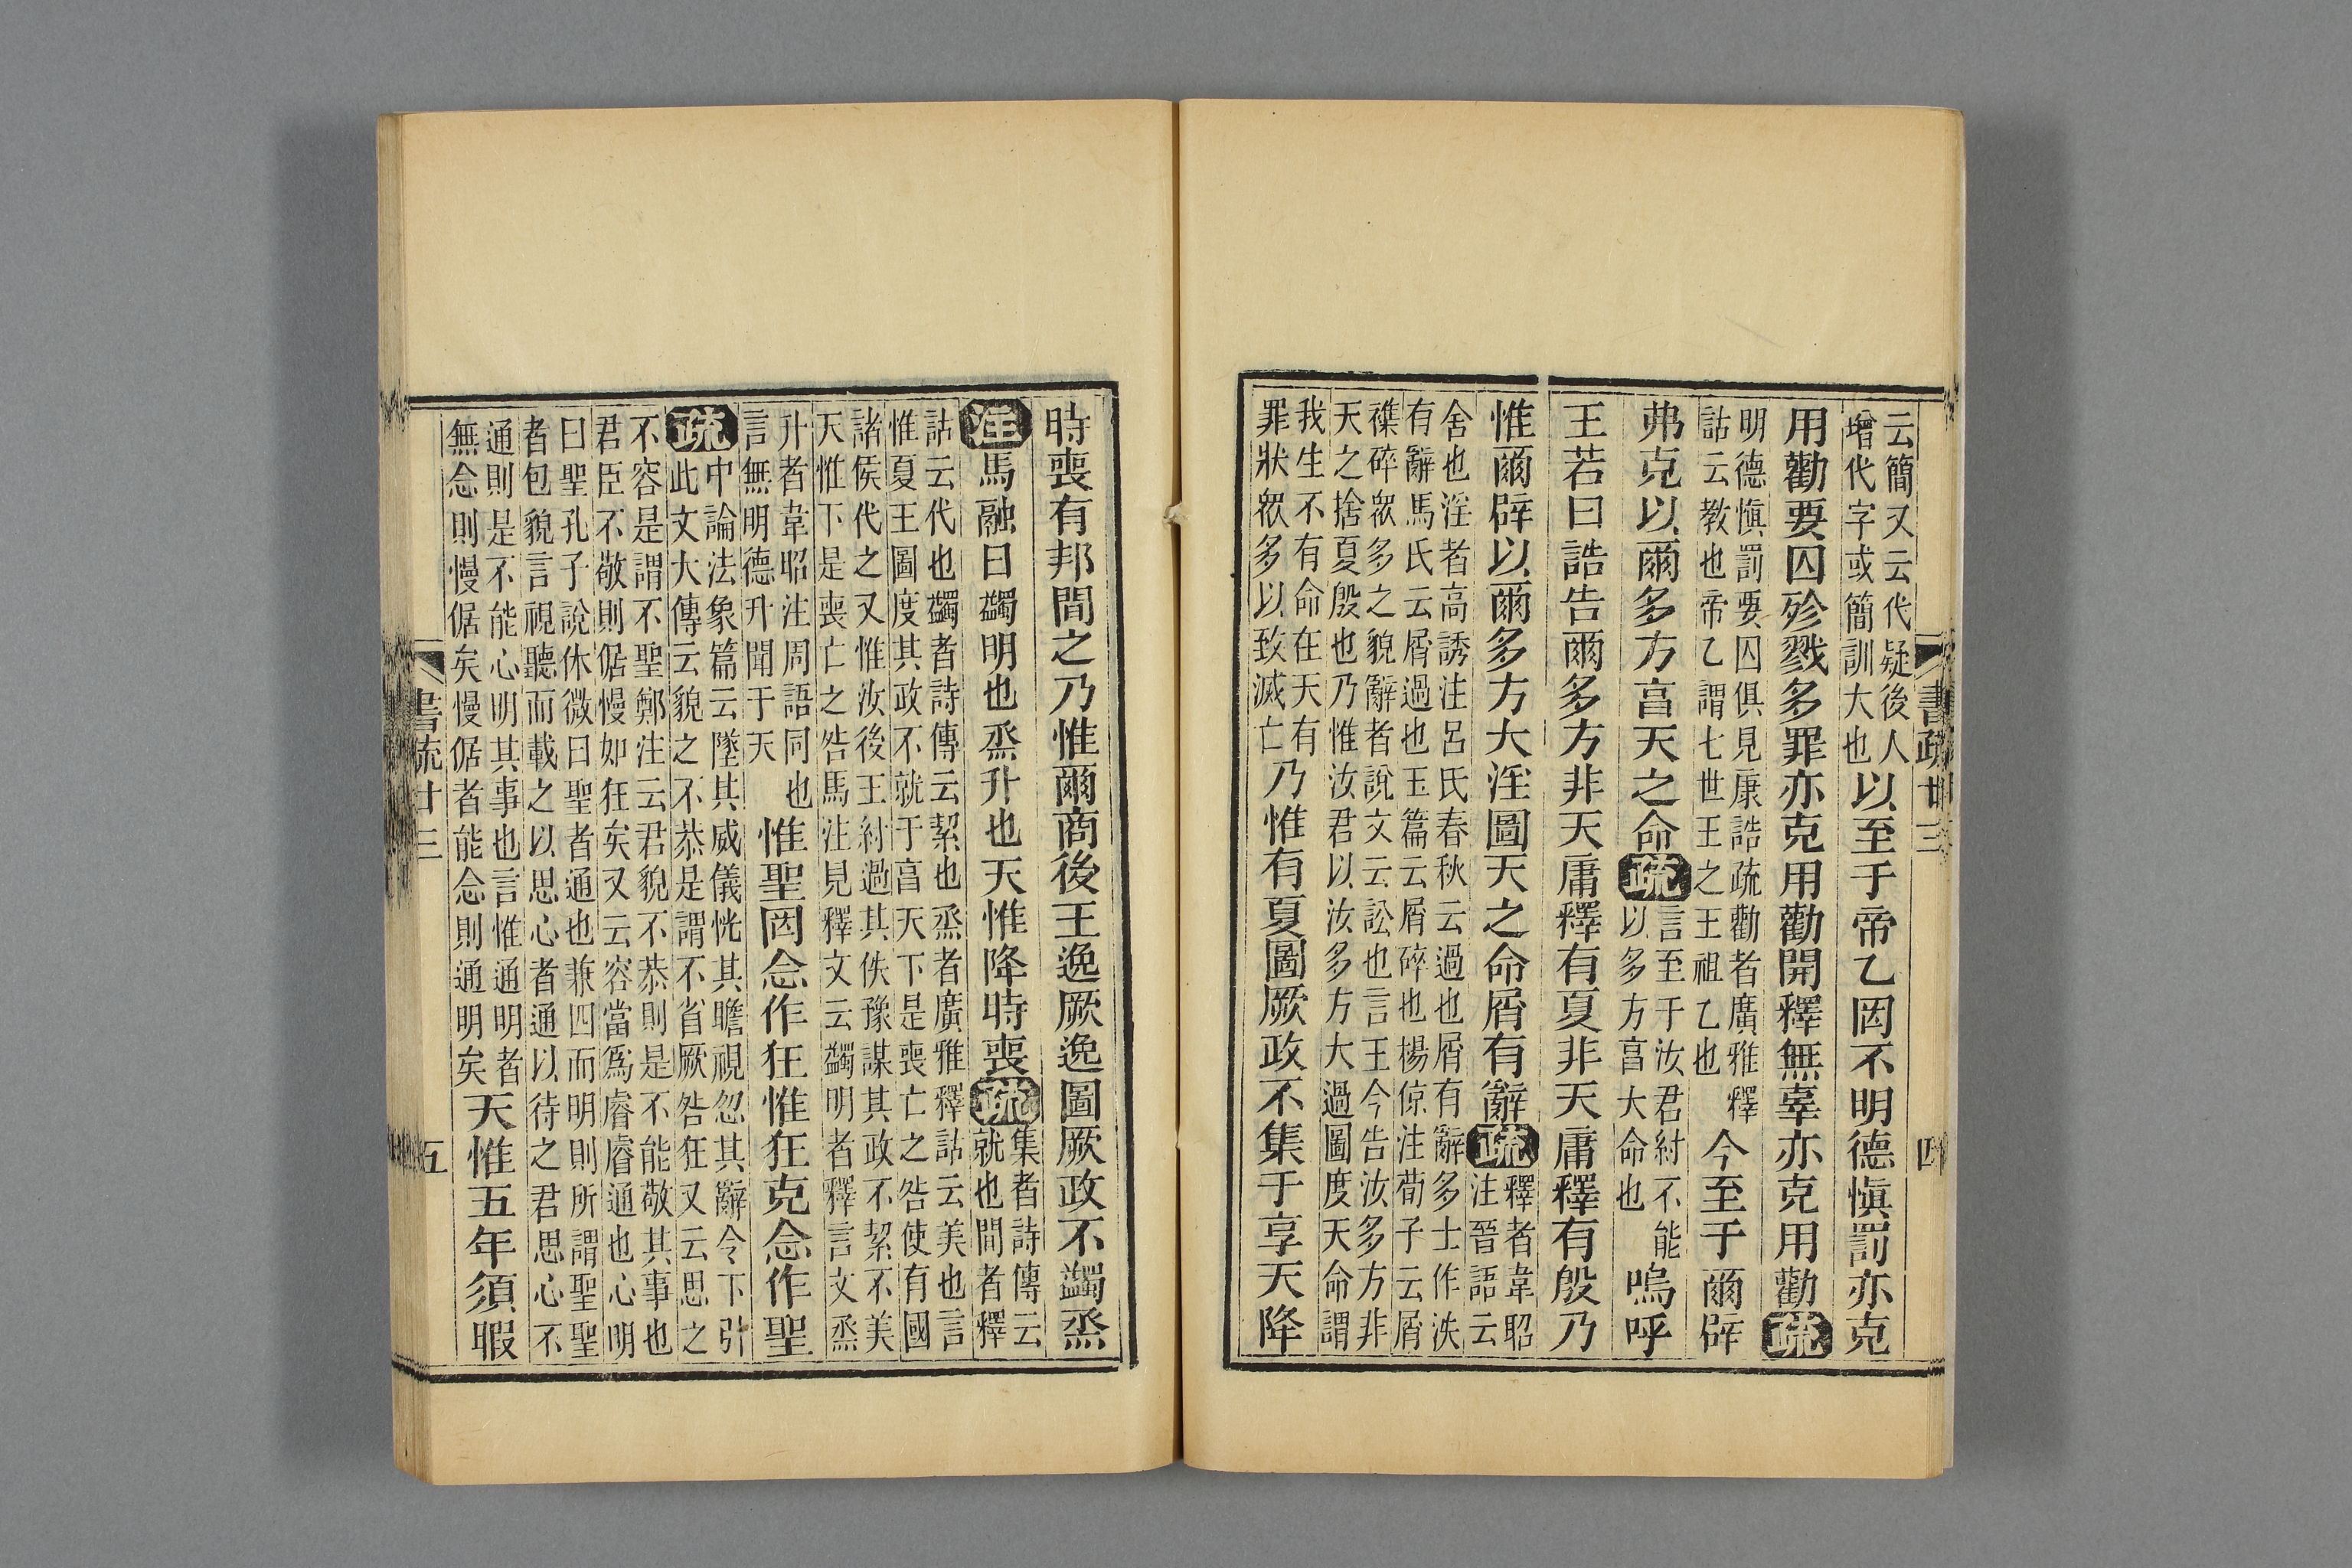 云簡又云代疑後人
增代字或簡訓大也
以至于帝乙罔不明德愼罰亦克
用勸要囚殄戮多罪亦克用勸開釋無辜亦克用勸疏
明德愼罰要囚俱見康誥疏勸者廣雅釋
詁云教也帝乙謂七世王之王祖乙也
今至于爾辟
弗克以爾多方亯天之命疏
言至于汝君紂不能
以多方亯大命也
嗚呼
王若曰誥告爾多方非天庸釋有夏非天庸釋有殷乃
惟爾辟以爾多方大淫圖天之命屑有辭疏
釋者韋昭
注晉語云
舍也淫者高誘注呂氏春秋云過也屑有辭多士作泆
有辭馬氏云屑過也玉篇云屑碎也楊倞注荀子云屑
襍碎衆多之貌辭者說文云訟也言王今告汝多方非
天之捨夏殷也乃惟汝君以汝多方大過圖度天命謂
我生不有命在天有
罪狀衆多以致滅亡
乃惟有夏圖厥政不集于享天降
書疏廿三
四
時喪有邦閒之乃惟爾商後王逸厥逸圖厥政不蠲烝
注馬融曰蠲明也烝升也天惟降時喪疏
集者詩傳云
就也閒者釋
詁云代也蠲者詩傳云絜也烝者廣雅釋詁云美也言
惟夏王圖度其政不就于亯天下是喪亡之咎使有國
諸侯代之又惟汝後王紂過其佚豫謀其政不絜不美
天惟下是喪亡之咎馬注見釋文云蠲明者釋言文烝
升者韋昭注周語同也
言無明德升聞于天
惟聖罔念作狂惟狂克念作聖
疏
中論法象篇云墜其威儀恍其瞻視忽其辭令下引
此文大傳云貌之不恭是謂不省厥咎狂又云思之
不容是謂不聖鄭注云君貌不恭則是不能敬其事也
君臣不敬則倨慢如狂矣又云容當爲睿睿通也心明
曰聖孔子說休徵曰聖者通也兼四而明則所謂聖聖
者包貌言視聽而載之以思心者通以待之君思心不
通則是不能心明其事也言惟通明者
無念則慢倨矣慢倨者能念則通明矣
天惟五年須暇
書疏廿三
五